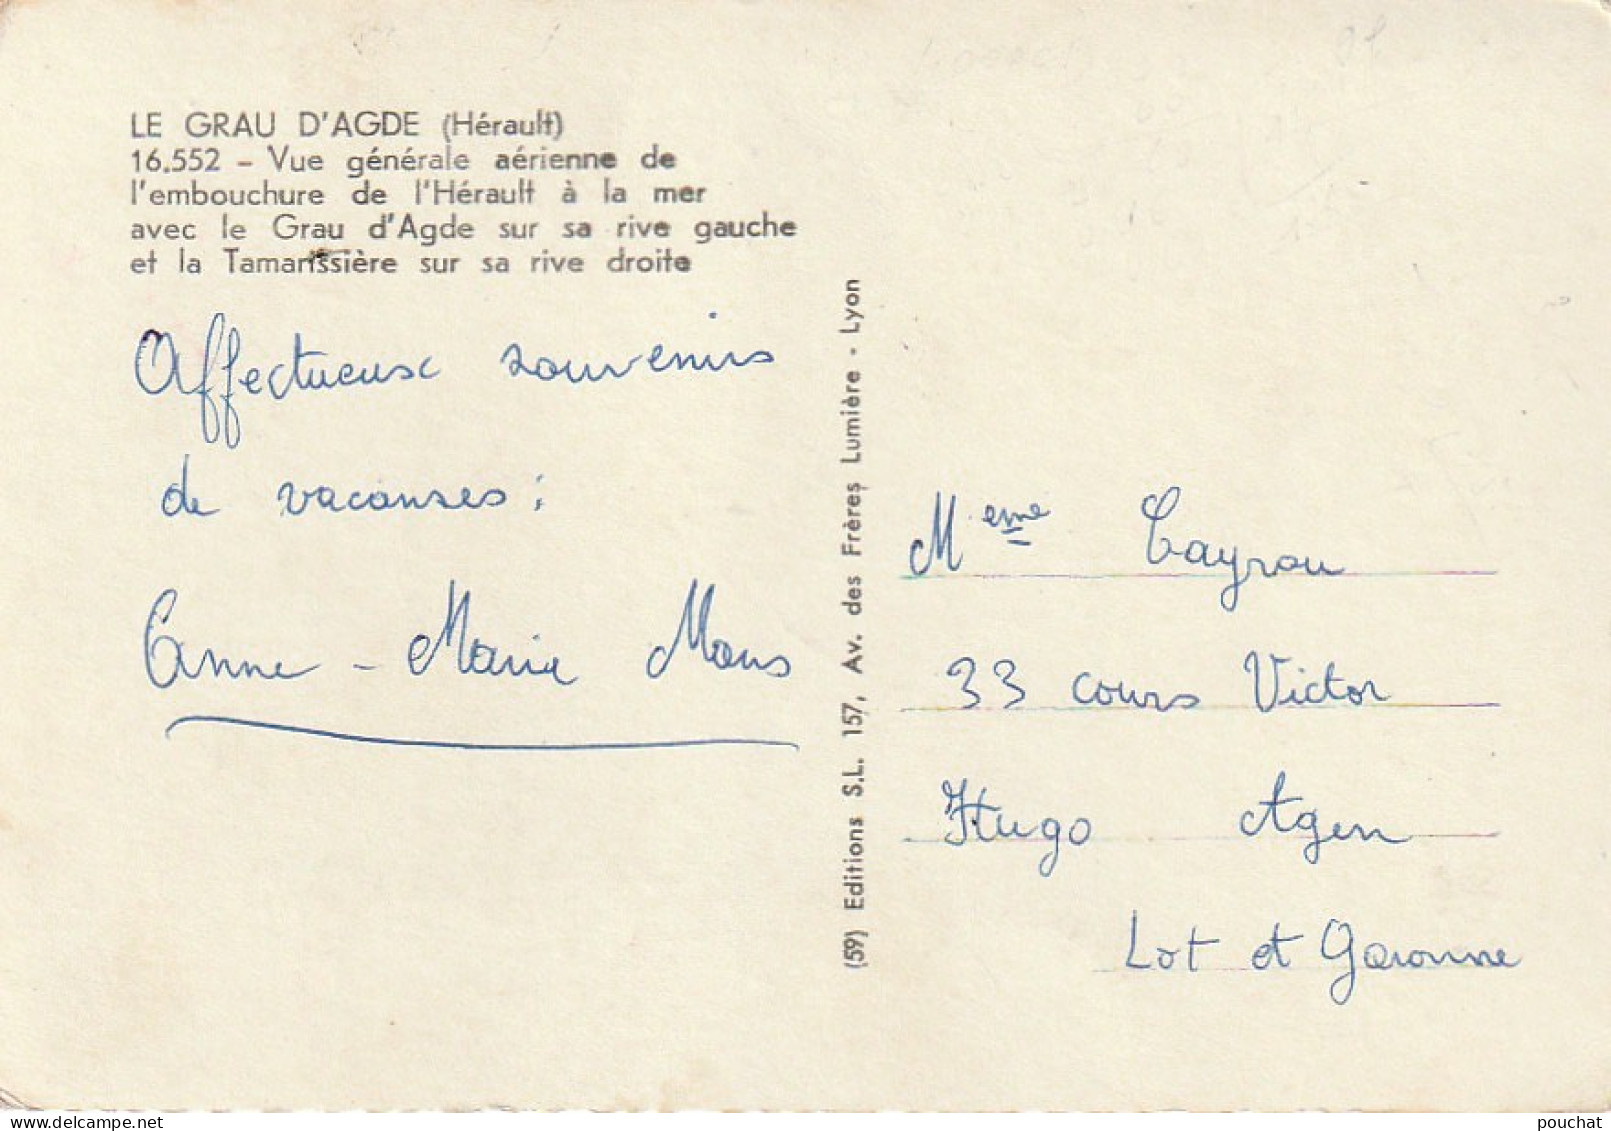 LE GRAU D'AGDE (Hérault)
16.552 - Vue générale aérienne de
l'embouchure de l'Hérault à la mer
avec le Grau d'Agde sur sa rive gauche
et la Tamarissière sur sa rive droite
Affectueux souvenirs
de vacanses :
Anne - Marie Mons
(59) Editions S.L. 157, Av. des Frères Lumière - Lyon
Meme Cayrou
33 cours Victor
Hugo Agen
Lot et Garonne
pouchat